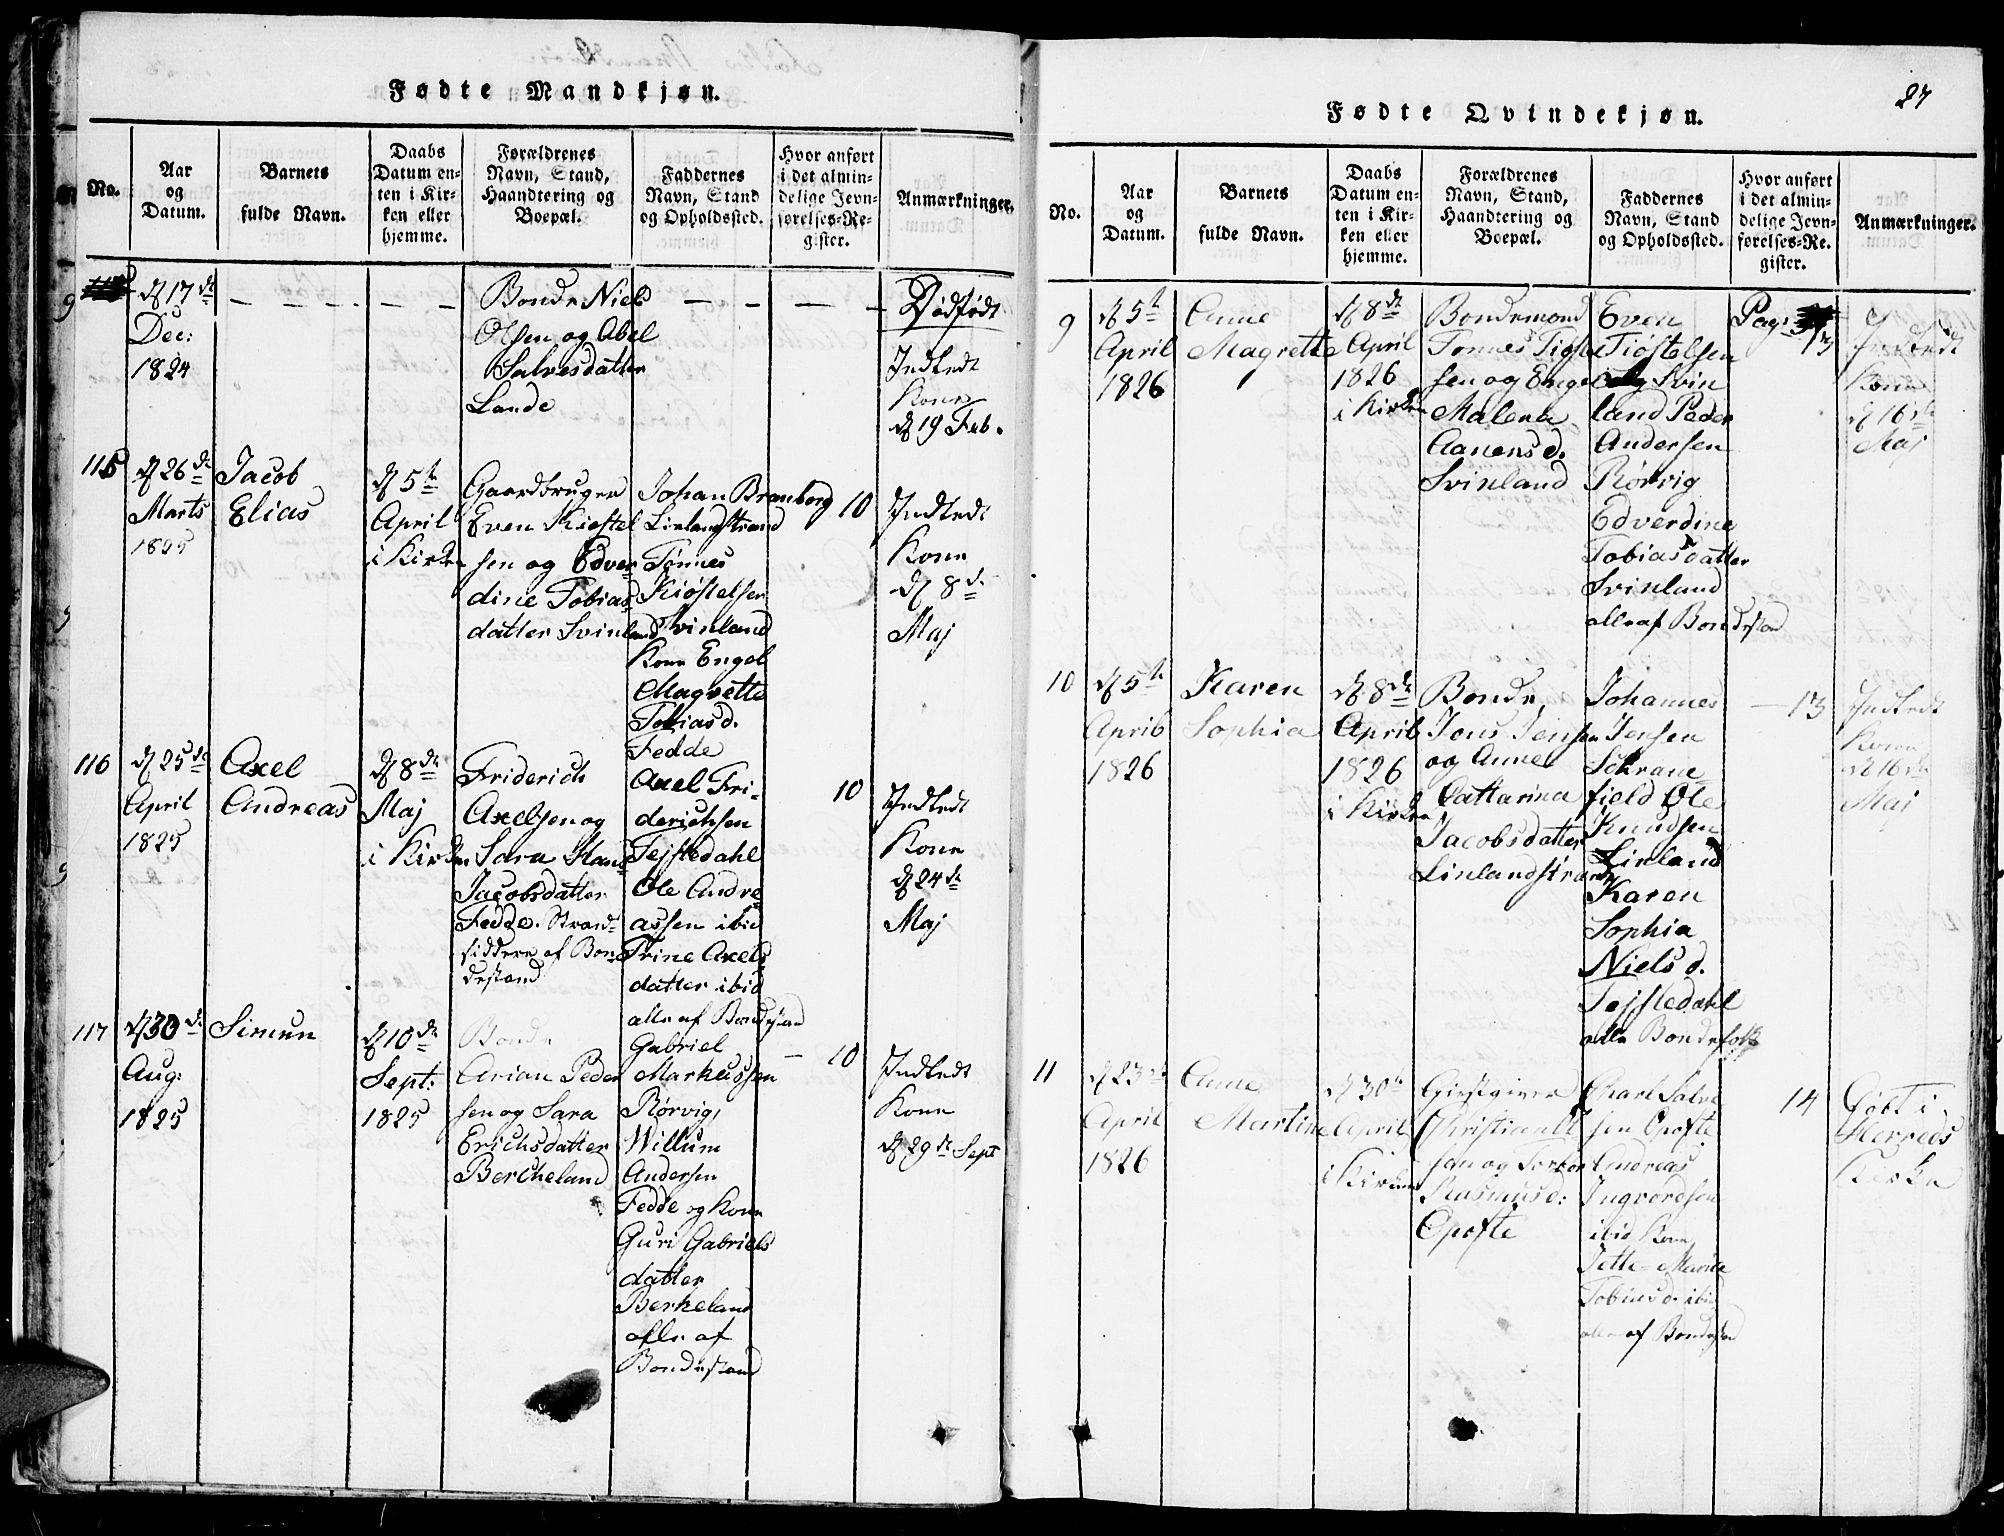 Fødte Mandkjøn.
No.
Aar
og
Datum.
Barnets
fulde Navn.
Daabs
Datum en-
ten i Kir-
ken eller
hjemme.
Forældrenes
Navn, Stand,
Haandtering og
Boepæl.
Faddernes
Navn, Stand
og Opholdssted.
Hvor anført
i det almin-
delige Jevn-
førelses-Re-
gister.
Anmærkninger.
17de
Dec:
1824
Bonde Niels
Olsen og Abel
Salvesdatter
Lande
Dødfødt
Indledt
Kone
d 19 Feb.
115
d 26de
Marts
1825
Jacob
Elias
d 5te
April
i Kirken
Gaardbruger
Even Kiøstel
sen og Edver
dine Tobias
datter Svinland
Johan Bramborg
Linlandstrand
Tønnes
Kiøstelsen
Svinland
Kone Engel
Magrette
Tobiasd.
Fedde
10
Indledt
Kone
d 8de
Maj
116
d 25de
April
1825
Axel
Andreas
d 8de
Maj
i Kirken
Friderich
Axelsen og
Sara Hans
Jacobsdatter
Fedde. Strand-
siddere af Bon
destand
Axel Fri-
derichsen
Tejstedahl
Ole Andre
assen ibid
Trine Axels
datter ibid
alle af Bondestand
10
Indledt
Kone
d 24de
Maj
117
d 30de
Aug:
1825
Simun
d 10de
Sept:
1825
Bonde
Arian Peder
sen og Sara
Erichsdatter
Bercheland
Gabriel
Markussen
Rørvig,
Willum
Andersen
Fedde og Kone
Guri Gabriels
datter
Berkeland
alle af
Bondestand
10
Indledt
Kone
d 29de Sept
27
Fødte Qvindekjøn.
No.
Aar
og
Datum.
Barnets
fulde Navn.
Daabs
Datum en-
ten i Kir-
ken eller
hjemme.
Forældrenes
Navn, Stand,
Haandtering og
Boepæl.
Faddernes
Navn, Stand
og Opholdssted.
Hvor anført
i det almin-
delige Jevn-
førelses-Re-
gister.
Anmærkninger.
9
d 5te
April
1826
Anne
Magrette
d 8de
April
1826
i Kirken
Bondemand
Tønnes Tiøstel
sen og Engel
Malena
Aanensd.
Svinland
Even
Tiøstelsen
Svin
land Peder
Andersen
Rørvig
Edverdine
Tobiasdatter
Svinland
alle af Bondestand
Pag:
13
Indledt
Kone
d 16de
Maj
10
d 5te
April
1826
Karen
Sophia
d 8de
April
1826
i Kirken
Bonde
Jens Jensen
og Anne
Cattarina
Jacobsdatter
Linlandstrand
Johannes
Jensen
Schrane
field Ole
Knudsen
Linland
Karen
Sophia
Niels d.
Tejstedahl
alle Bondefolk
13
Indledt
Kone
d 16de
Maj
11
d 23de
April
1826
Anne
Martine
d 30te
April
i Kirken
Giestgiver
Christian Ol
sen og Torbor
Rasmusd:
Opofte
Charl Salve
sen Opofte
Andreas
Ingvordsen
ibid Kone
Jette Marie
Tobiasd. ibid
alle af Bondestand
14
Døbt i
Herreds
Kirke